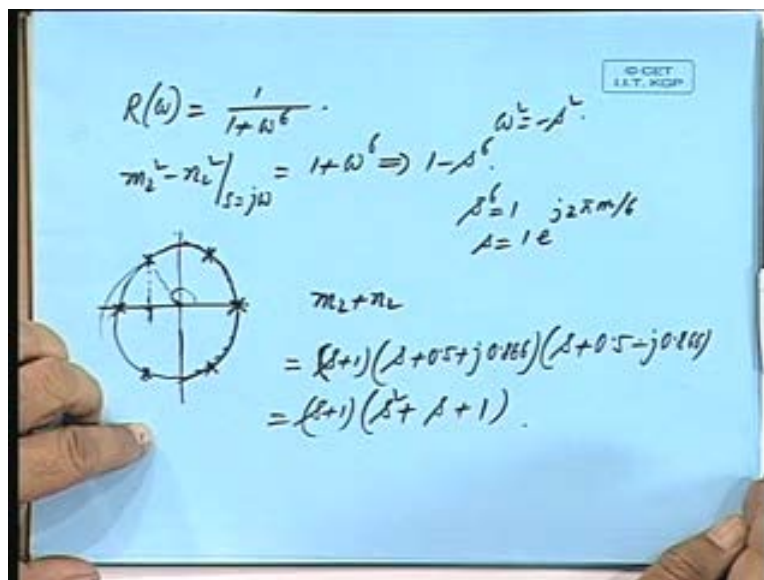 © CET
I.I.T. KGP
R(ω) = 1/(1+ω⁶).
ω² = -s².
m₂² - n₂²|s=jω = 1+ω⁶ ⇒ 1-s⁶.
s⁶ = 1
s = 1 e^(j2πm/6)
m₂+n₂
= (s+1)(s+0.5+j0.866)(s+0.5-j0.866)
= (s+1)(s²+s+1).